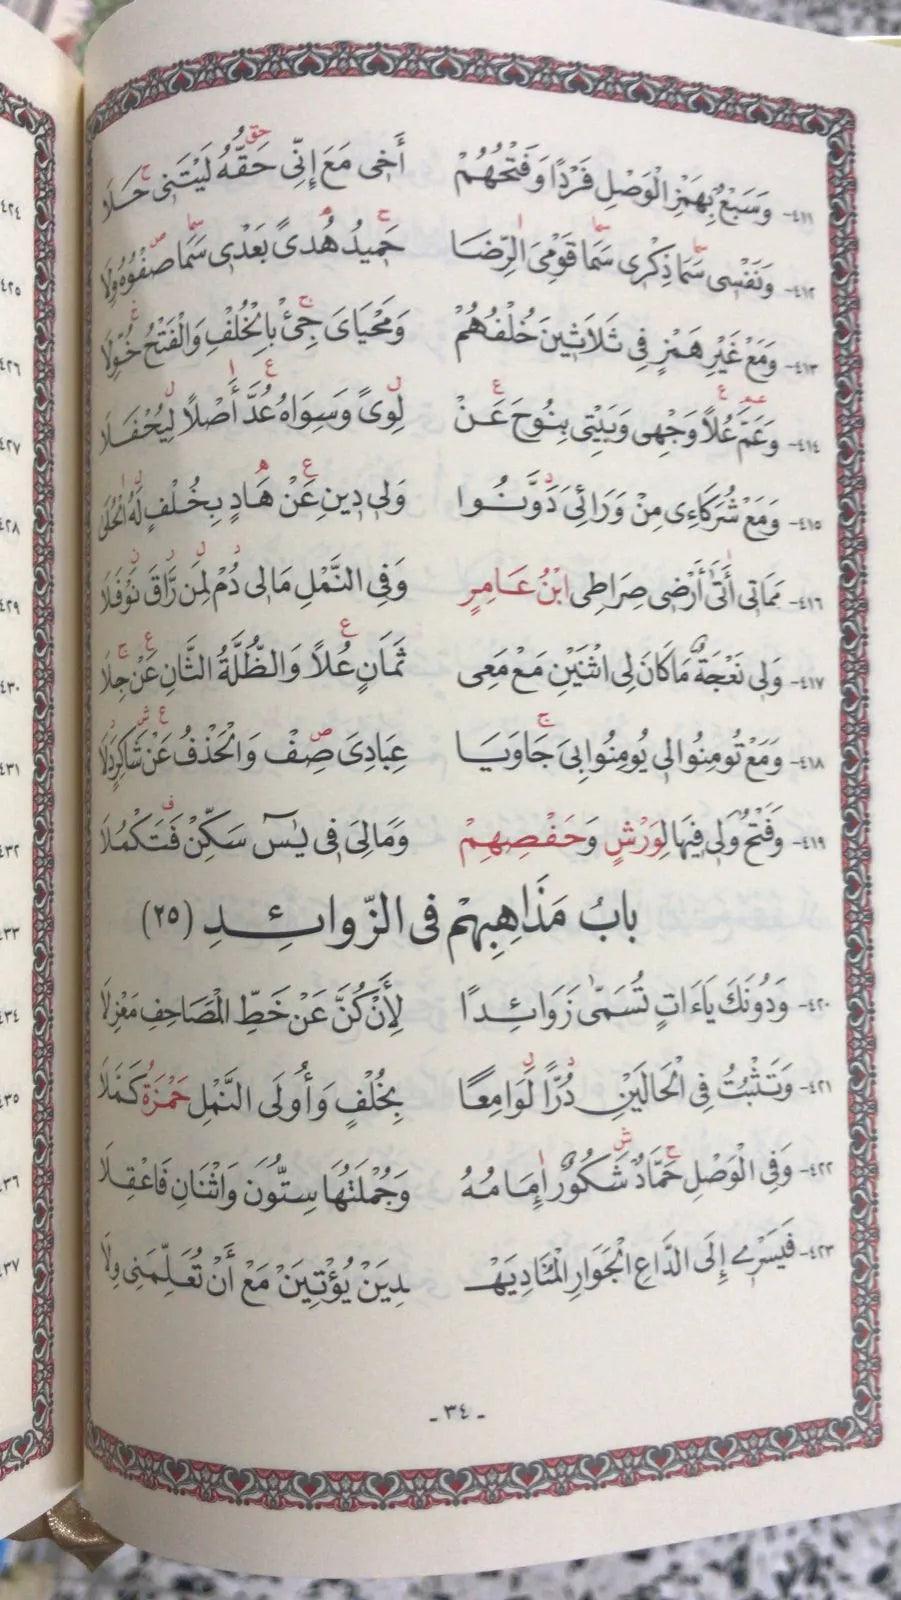 ٤١١- وَسَبْعٌ بِهَمْزِ الْوَصْلِ فَرْدًا وَفَتْحُهُمْ أَخِى مَعَ إِنِّى حَقُّهُ لَيْتَنِى حَلَا
٤١٢- وَنَفْسِى سَمَا ذِكْرِى سَمَا قَوْمِىَ الرِّضَا حَمِيدُ هُدًى بَعْدِى سَمَا صَفْوُهُ وِلَا
٤١٣- وَمَعْ غَيْرِ هَمْزٍ فِى ثَلَاثِينَ خُلْفُهُمْ وَمَحْيَاىَ جِئْ بِالْخُلْفِ وَالْفَتْحُ خُوِّلَا
٤١٤- وَعَمَّ عُلًا وَجْهِى وَبَيْتِى بِنُوحَ عَنْ لِوًى وَسِوَاهُ عُدَّ أَصْلًا لِيُحْفَلَا
٤١٥- وَمَعْ شُرَكَاءِى مِنْ وَرَائِى دَوَّنُوا وَلِى دِينِ عَنْ هَادٍ بِخُلْفٍ لَهُ الْحُلَى
٤١٦- مَمَاتِى أَتَى أَرْضِى صِرَاطِى ابْنُ عَامِرٍ وَفِى النَّمْلِ مَالِى دُمْ لِمَن رَّاقَ نَوْفَلَا
٤١٧- وَلِى نَعْجَةٌ مَا كَانَ لِى اثْنَيْنِ مَعْ مَعِى ثَمَانٍ عُلًا وَالظُّلَّةُ الثَّانِ عَنْ جِلَا
٤١٨- وَمَعْ تُومِنُوا لِى يُومِنُوا بِىَ جَاوَيَا عِبَادِىَ صِفْ وَالْحَذْفُ عَنْ شَاكِرٍ دَلَا
٤١٩- وَفَتْحُ وَلِى فِيهَا لِوَرْشٍ وَحَفْصِهِمْ وَمَالِىَ فِى يٰسٓ سَكِّنْ فَتَكْمُلَا
بابُ مَذَاهِبِهِمْ فى الزّوائِدِ (٢٥)
٤٢٠- وَدُونَكَ يَاءَاتٍ تُسَمَّى زَوَائِدَا لِأَنْ كُنَّ عَنْ خَطِّ الْمَصَاحِفِ مَعْزِلَا
٤٢١- وَتَثْبُتُ فِى الْحَالَيْنِ دُرًّا لَوَامِعًا بِخُلْفٍ وَأُولَى النَّمْلِ حَمْزَةُ كَمَّلَا
٤٢٢- وَفِى الْوَصْلِ حَمَّادٌ شَكُورٌ إِمَامُهُ وَجُمْلَتُهَا سِتُّونَ وَاثْنَانِ فَاعْقِلَا
٤٢٣- فَيَسْرِى إِلَى الدَّاعِ الْجَوَارِ الْمُنَادِيَهْـ ـدِيَنْ يُؤْتِيَنْ مَعْ أَنْ تُعَلِّمَنِى وِلَا
- ٣٤ -
٤٢٤
٤٢٥
٤٢٦
٤٢٧
٤٢٨
٤٢٩
٤٣٠
٤٣١
٤٣٢
٤٣٣
٤٣٤
٤٣٥
٤٣٦
٤٣٧